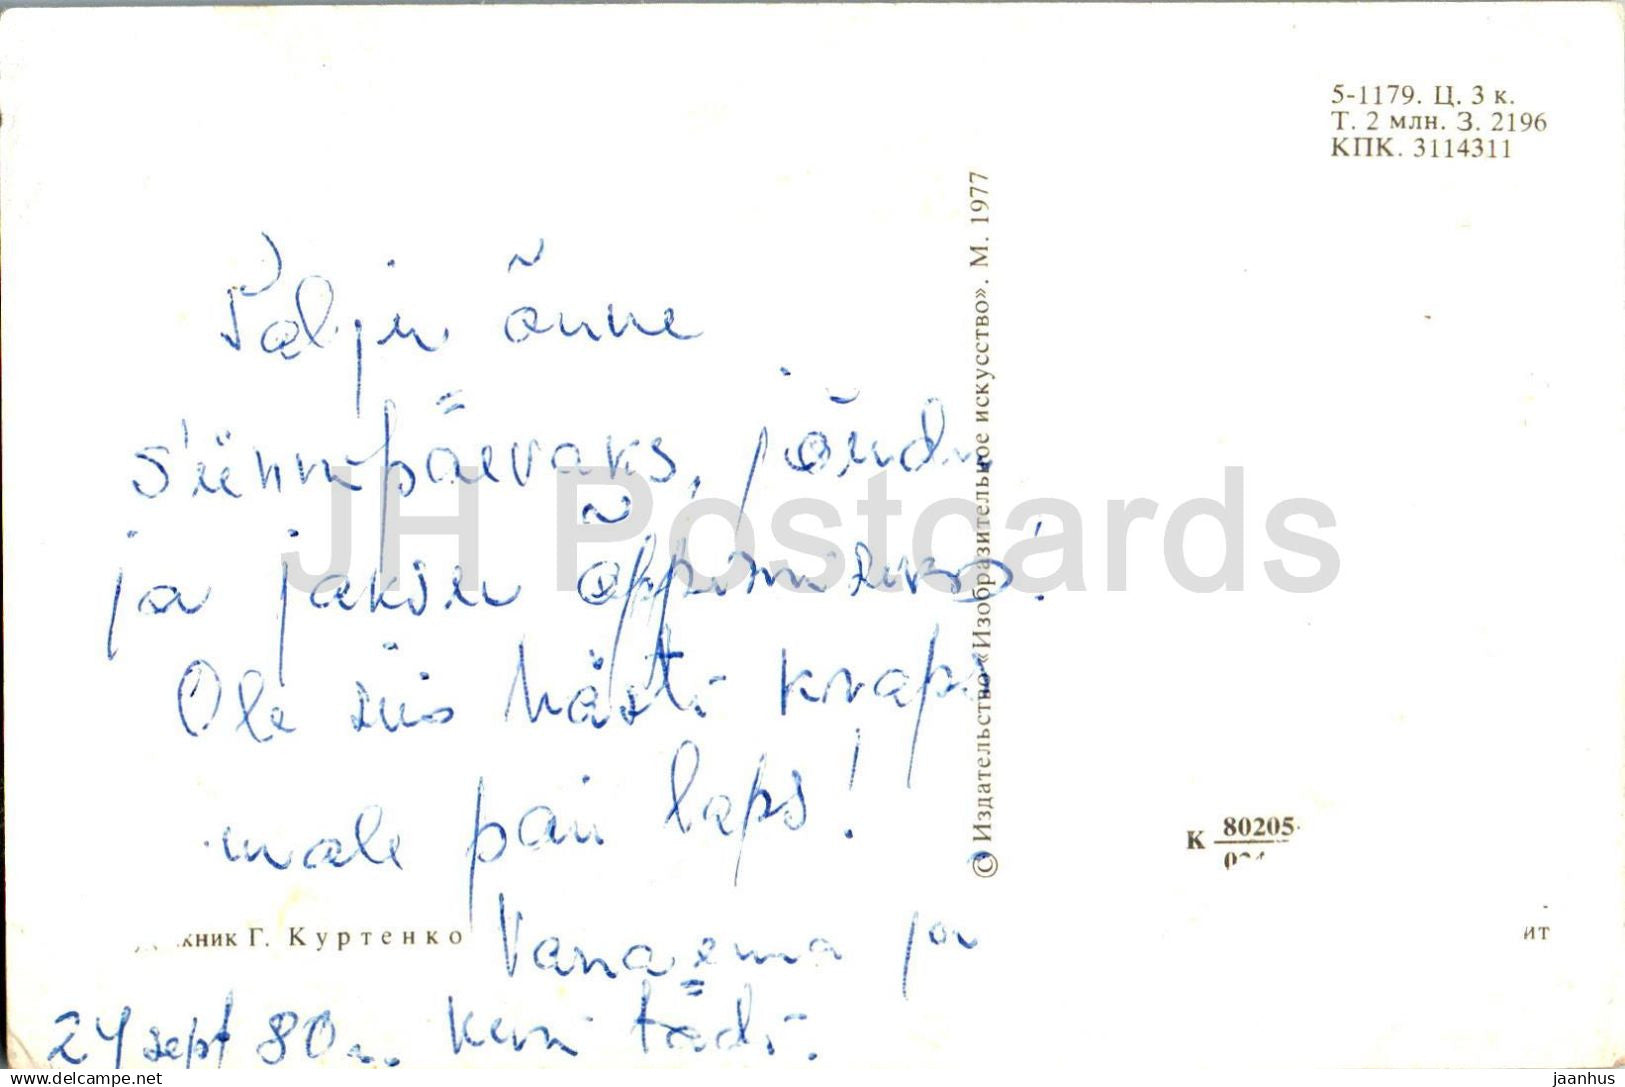 5-1179. Ц. 3 к.
Т. 2 млн. З. 2196
КПК. 3114311
© Издательство «Изобразительное искусство». М. 1977
Palju õnne
sünnipäevaks, jõudu
ja jaksu õppimiseks!
Ole siis hästi kraps
mole pai laps!
Vanaema ja
tädi.
24 sept 80
жник Г. Куртенко
К 80205
ит
JH Postcards
www.delcampe.net
jaanhus